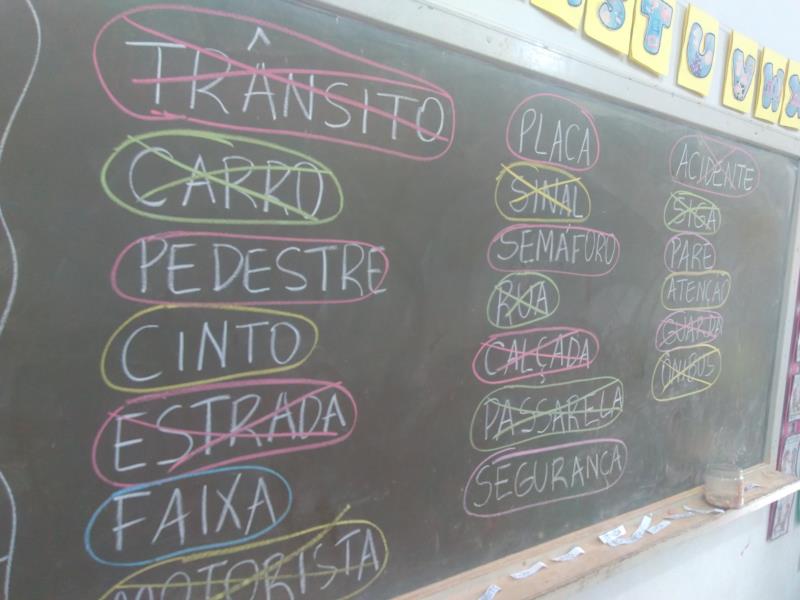 TRÂNSITO
CARRO
PEDESTRE
CINTO
ESTRADA
FAIXA
MOTORISTA
PLACA
SINAL
SEMÁFURO
RUA
CALÇADA
PASSARELA
SEGURANÇA
ACIDENTE
SIGA
PARE
ATENÇÃO
GUARDA
ÔNIBUS
S T U V W X